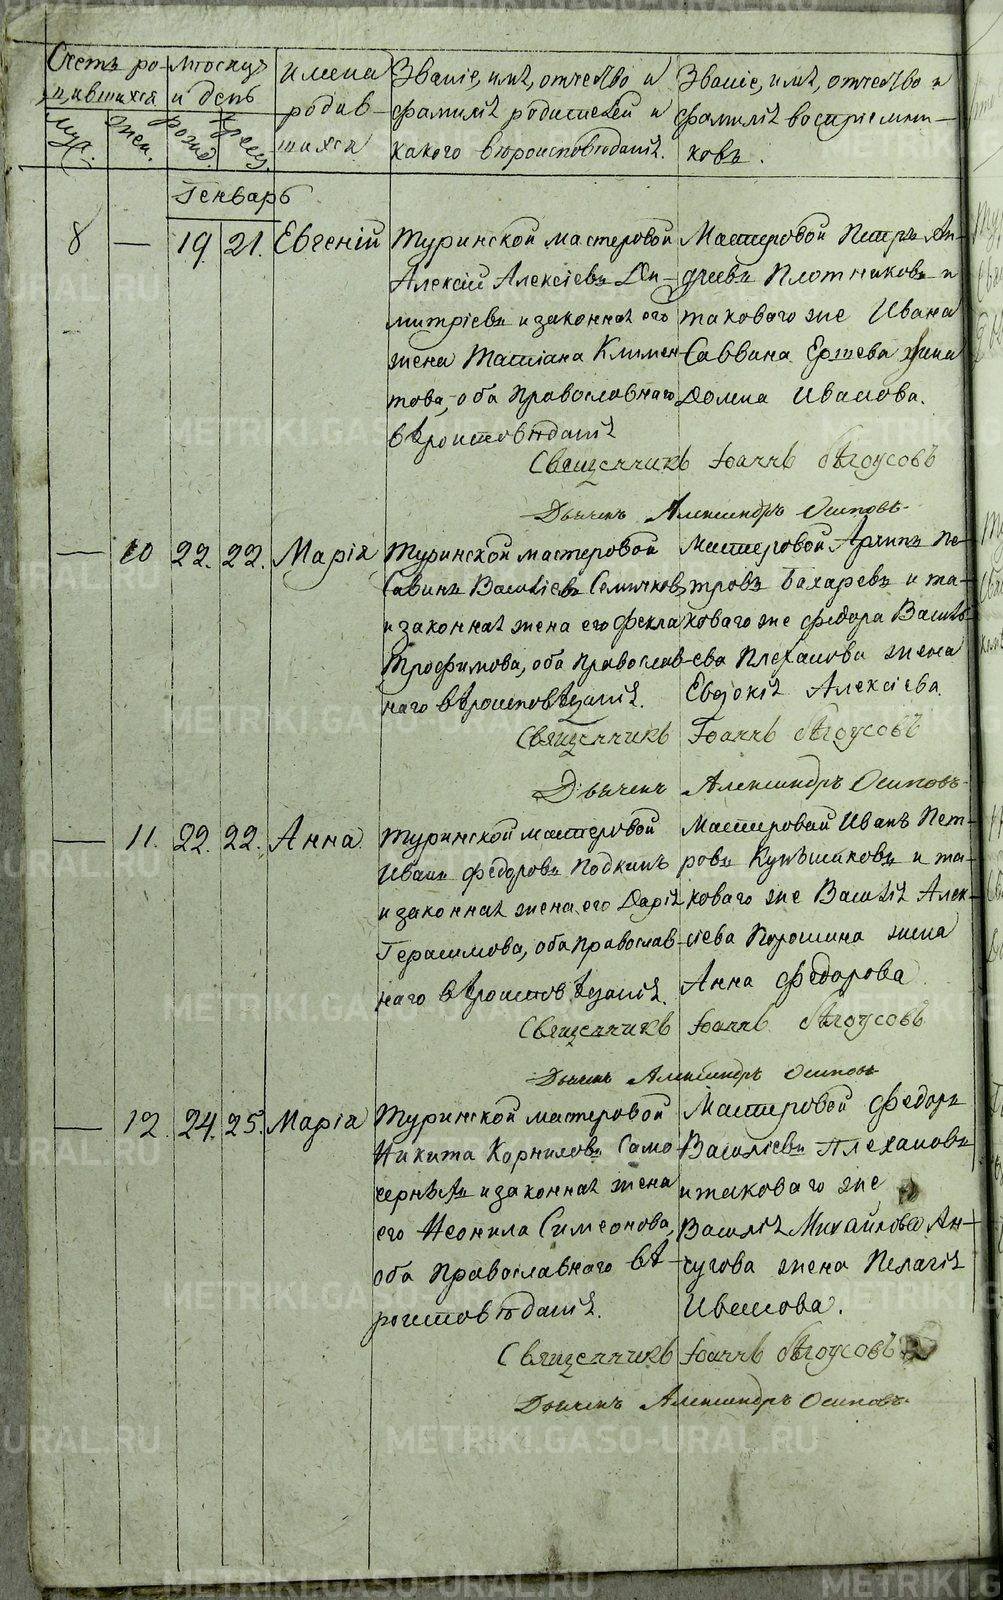 Счетъ ро-
дившихся
Муж.
Жен.
Мѣсяцъ
и день
рожд.
крещ.
имена
родив-
шихся
Званіе, имя, отчество и
фамилія родителей и
какого вѣроисповѣданія.
Званіе, имя, отчество и
фамилія воспріемни-
ковъ.
Генварь
8 — 19. 21. Евгеній
Туринской мастеровой
Алексѣй Алексѣевъ Ди-
митріевъ и законная его
жена Татіана Климен-
това, оба Православнаго
вѣроисповѣданія
Мастеровой Петръ Ан-
дреевъ Плотниковъ и
таковаго же Ивана
Саввина Ершева жена
Домна Иванова.
Священникъ Іоаннъ Бѣлоусовъ
Дьячекъ Александръ Осиповъ.
— 10 22. 22. Марія
Туринской мастеровой
Савинъ Васильевъ Семячковъ
и законная жена его Фекла
Трофимова, оба православ-
наго вѣроисповѣданія.
Мастеровой Архипъ Пе-
тровъ Бахаревъ и та-
коваго же Федора Василь-
ева Плеханова жена
Евдокія Алексѣева.
Священникъ Іоаннъ Бѣлоусовъ
Дьячекъ Александръ Осиповъ.
— 11. 22. 22. Анна
Туринской мастеровой
Иванъ Федоровъ Подкинъ
и законная жена его Дарія
Герасимова, оба православ-
наго вѣроисповѣданія.
Мастеровой Иванъ Пет-
ровъ Кунѣшиковъ и та-
коваго же Василія Алек-
сѣева Порошина жена
Анна Федорова
Священникъ Іоаннъ Бѣлоусовъ
Дьячекъ Александръ Осиповъ
— 12. 24. 25. Марія
Туринской мастеровой
Никита Корниловъ Само-
чернѣтъ и законная жена
его Неонила Симеонова,
оба Православнаго вѣ-
роисповѣданія.
Мастеровой Федоръ
Васильевъ Плехановъ
и таковаго же
Василія Михайлова Ан-
чугова жена Пелагія
Иванова.
Священникъ Іоаннъ Бѣлоусовъ
Дьячекъ Александръ Осиповъ.
METRIKI.GASO-URAL.RU